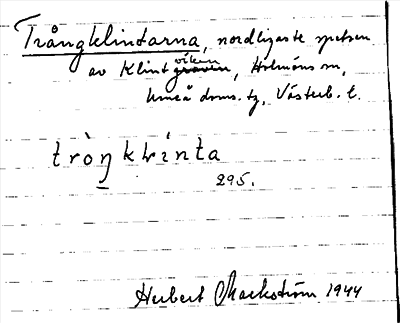 Trångklintarna, nordligaste spetsen
av Klintviken, Holmöns sn,
Umeå doms. tg, Västerb. l.
tròŋkḷìnta
295.
Herbert Markström 1944